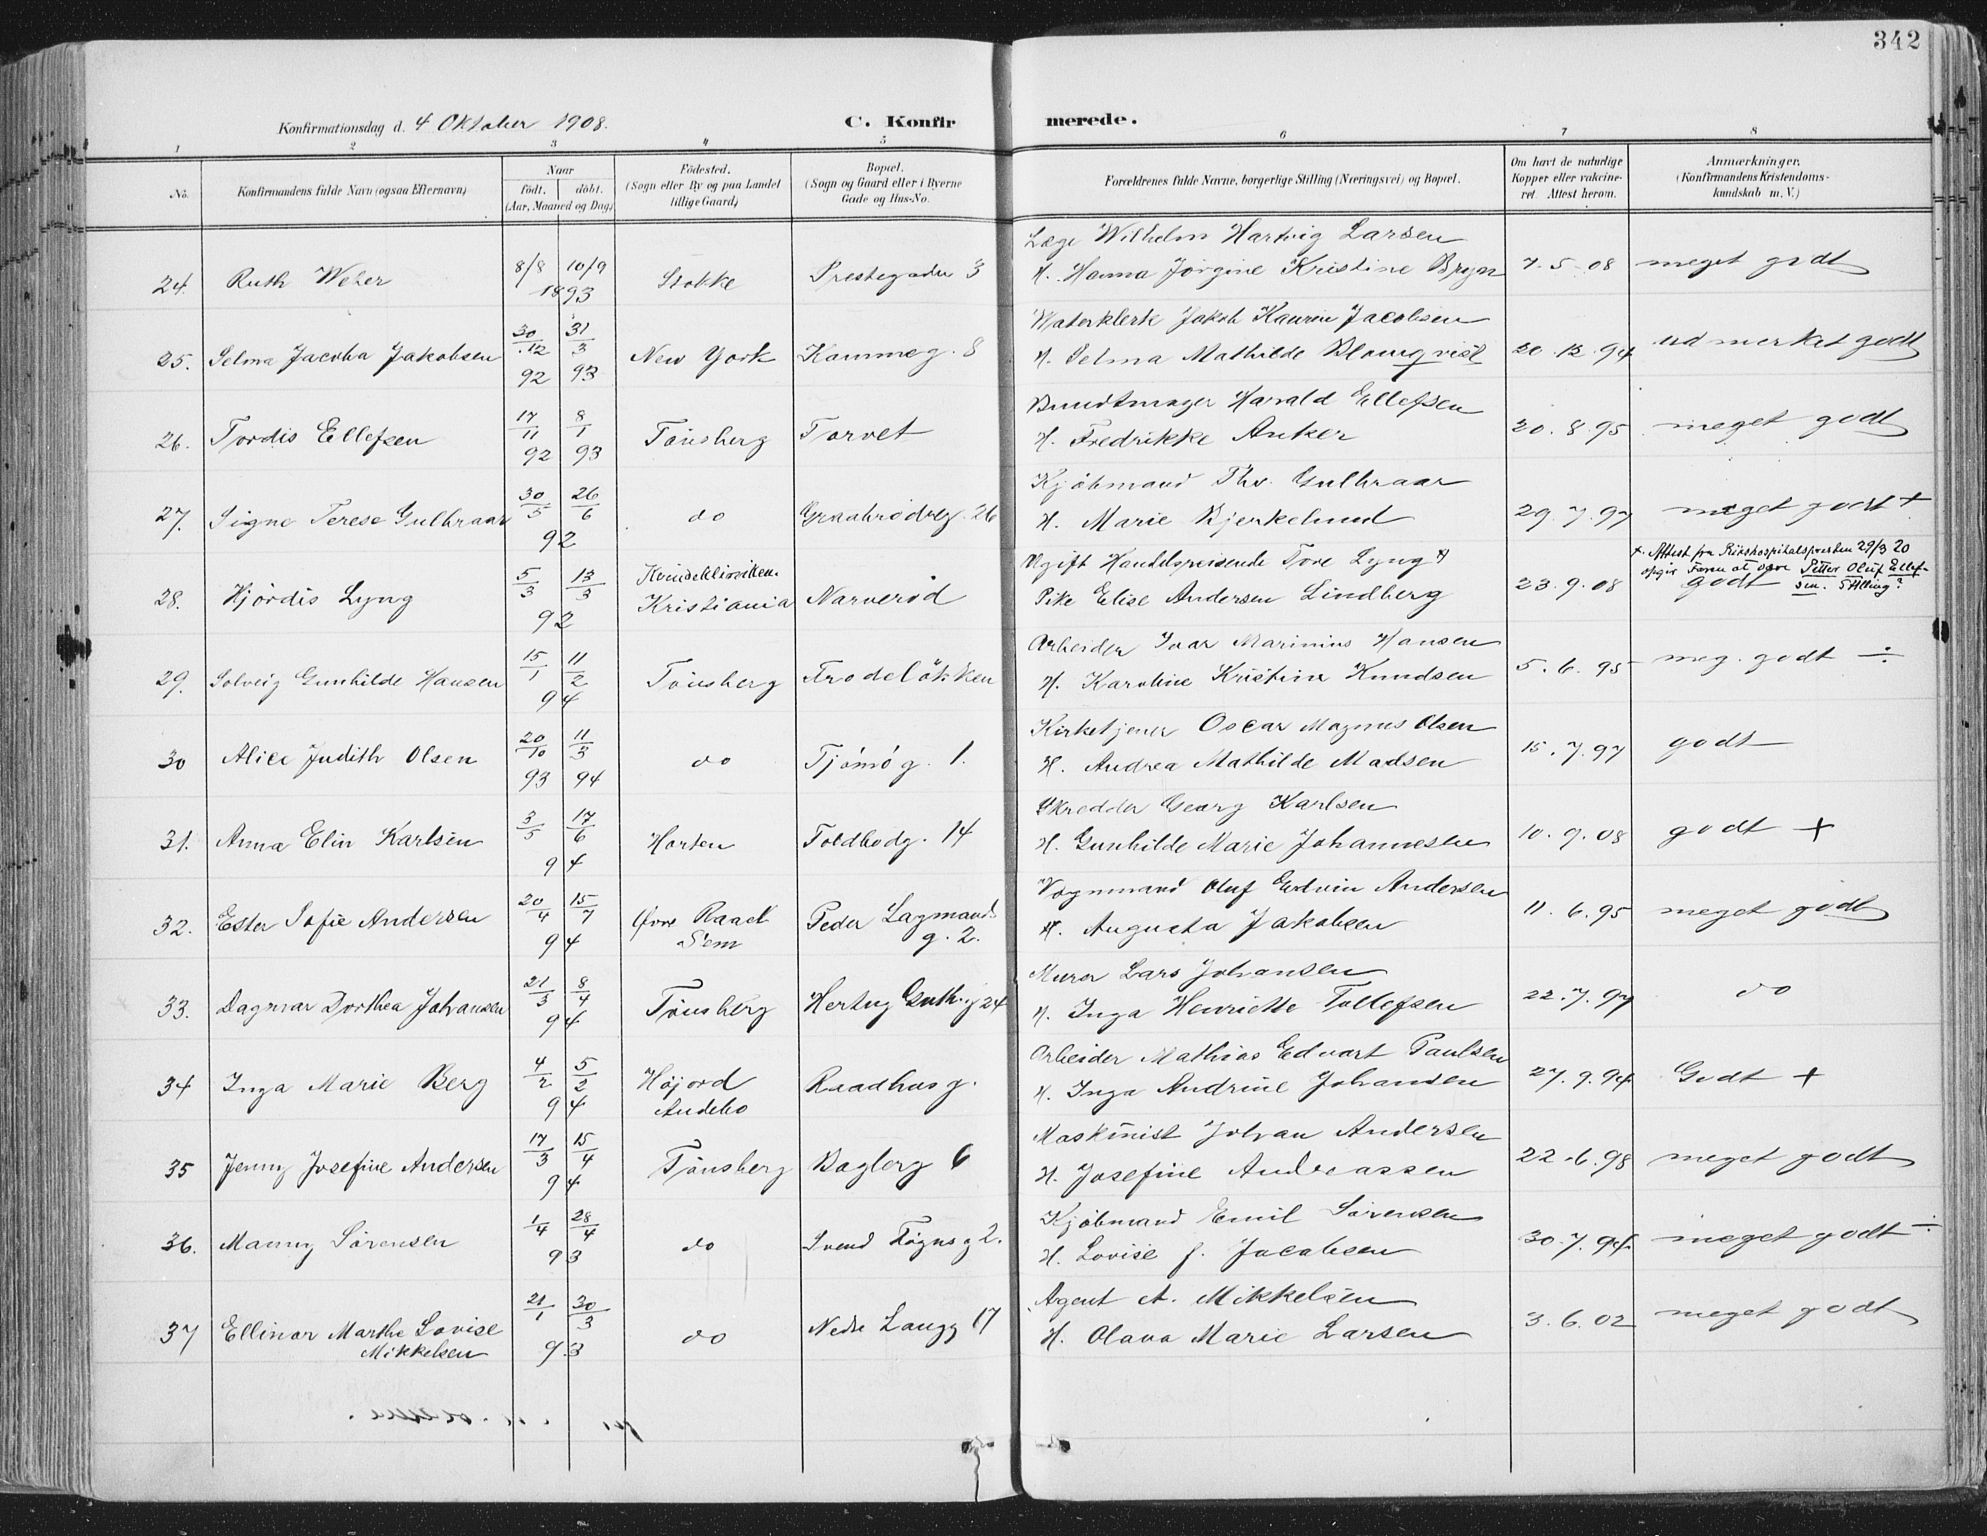 342
Konfirmationsdag d. 4 Oktober 1908. C. Konfirmerede.
1 2 3 4 5 6 7 8
No. Konfirmandens fulde Navn (ogsaa Efternavn) Naar født. døbt. (Aar, Maaned og Dag) Fødested. (Sogn eller By og paa Landet tillige Gaard) Bopæl. (Sogn og Gaard eller i Byerne Gade og Hus-No. Forældrenes fulde Navne, borgerlige Stilling (Næringsvei) og Bopæl. Om havt de naturlige Kopper eller vaccineret. Attest herom. Anmærkninger. (Konfirmandens Kristendomskundskab m. V.)
Læge Wilhelm Hartvig Larsen
24. Ruth Weber 8/8 10/9 1893 Stokke Prestegaden 3 H. Hanna Jørgine Kristine Bryn 7. 5 08 meget godt
Waterklerk Jakob Kaurin Jacobsen
25. Selma Jacoba Jakobsen 30/12 92 31/3 93 New York Kammeg. 8 H. Selma Mathilde Blomqvist 20. 12. 94 udmerket godt
Bundtmager Harald Ellefsen
26. Tordis Ellefsen 17/11 92 8/1 93 Tønsberg Torvet H. Fredrikke Anker 20. 8. 95 meget godt
Kjøbmand Thv. Gulbraar
27. Signe Terese Gulbraar 30/5 26/6 92 do Graabrødreg. 26 H. Marie Bjerkelund 29. 7. 97 meget godt +
Ugift Handelsreisende Tore Lyng +
+ Attest fra Rikshospitalspresten 29/3 20
opgir Faren at være Petter Oluf Ellefsen. Stilling?
28. Hjørdis Lyng 5/3 13/3 92 Kvindeklinikken. Kristiania Narverød Pike Elise Andersen Lindberg 23. 9. 08 godt
Arbeider Ivar Marinius Hansen
29. Solveig Gunhilde Hansen 15/1 11/2 94 Tønsberg Frodeløkken H. Karoline Kristine Knudsen 5. 6. 95 meg. godt ÷
Kirketjener Oscar Magnus Olsen
30 Alice Judith Olsen 20/10 93 11/3 94 do Tjømøg. 1. H. Andrea Mathilde Madsen 15. 7. 97 godt
Skredder Georg Karlsen
31. Anna Elin Karlsen 3/5 17/6 94 Horten Toldbodg. 14 H. Gunhilde Marie Johannesen 10. 9. 08 godt +
Vognmand Oluf Edvin Andersen
32. Ester Sofie Andersen 20/4 15/7 94 Øvre Raael Sem Peder Lagmands g. 2. H. Augusta Jakobsen 11. 6. 95 meget godt
Murer Lars Johansen
33. Dagmar Dorthea Johansen 21/3 8/4 94 Tønsberg Hertug Guth.g 24 H. Inga Henriette Tollefsen 22. 7. 97 do
Arbeider Mathias Edvart Paulsen
34 Inga Marie Berg 4/2 5/2 94 Højord Andebo Raadhusg. H. Inga Andrine Johansen 27. 9. 94. Godt +
Maskinist Johan Andersen
35 Jenny Josefine Andersen 17/3 15/4 94 Tønsberg Bagberg 6 H. Josefine Andreassen 22. 6. 98 meget godt
Kjøbmand Emil Sørensen
36. Manny Sørensen 1/4 28/4 93 do Svend Føynsg 2. H. Lovise f. Jacobsen 30. 7. 94. meget godt ÷
Agent A. Mikkelsen
37 Ellinor Marthe Lovise Mikkelsen 21/1 30/3 93 do Nedre Langg 17 H. Olava Marie Larsen 3. 6. 02 meget godt